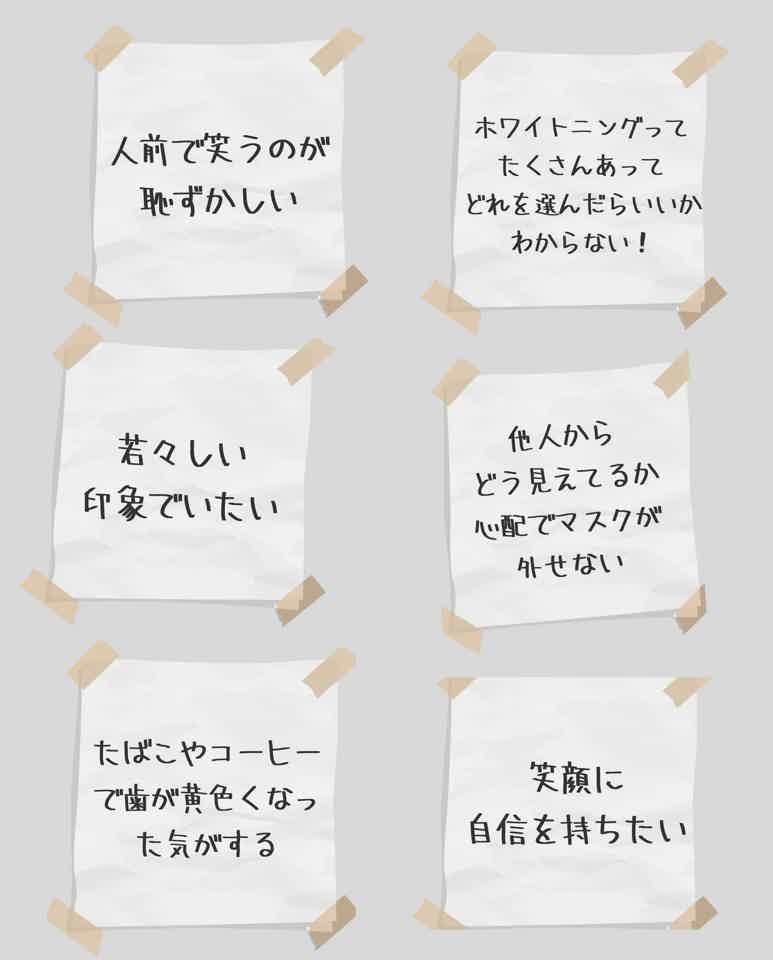 人前で笑うのが
恥ずかしい
ホワイトニングって
たくさんあって
どれを選んだらいいか
わからない！
若々しい
印象でいたい
他人から
どう見えてるか
心配でマスクが
外せない
たばこやコーヒー
で歯が黄色くなっ
た気がする
笑顔に
自信を持ちたい